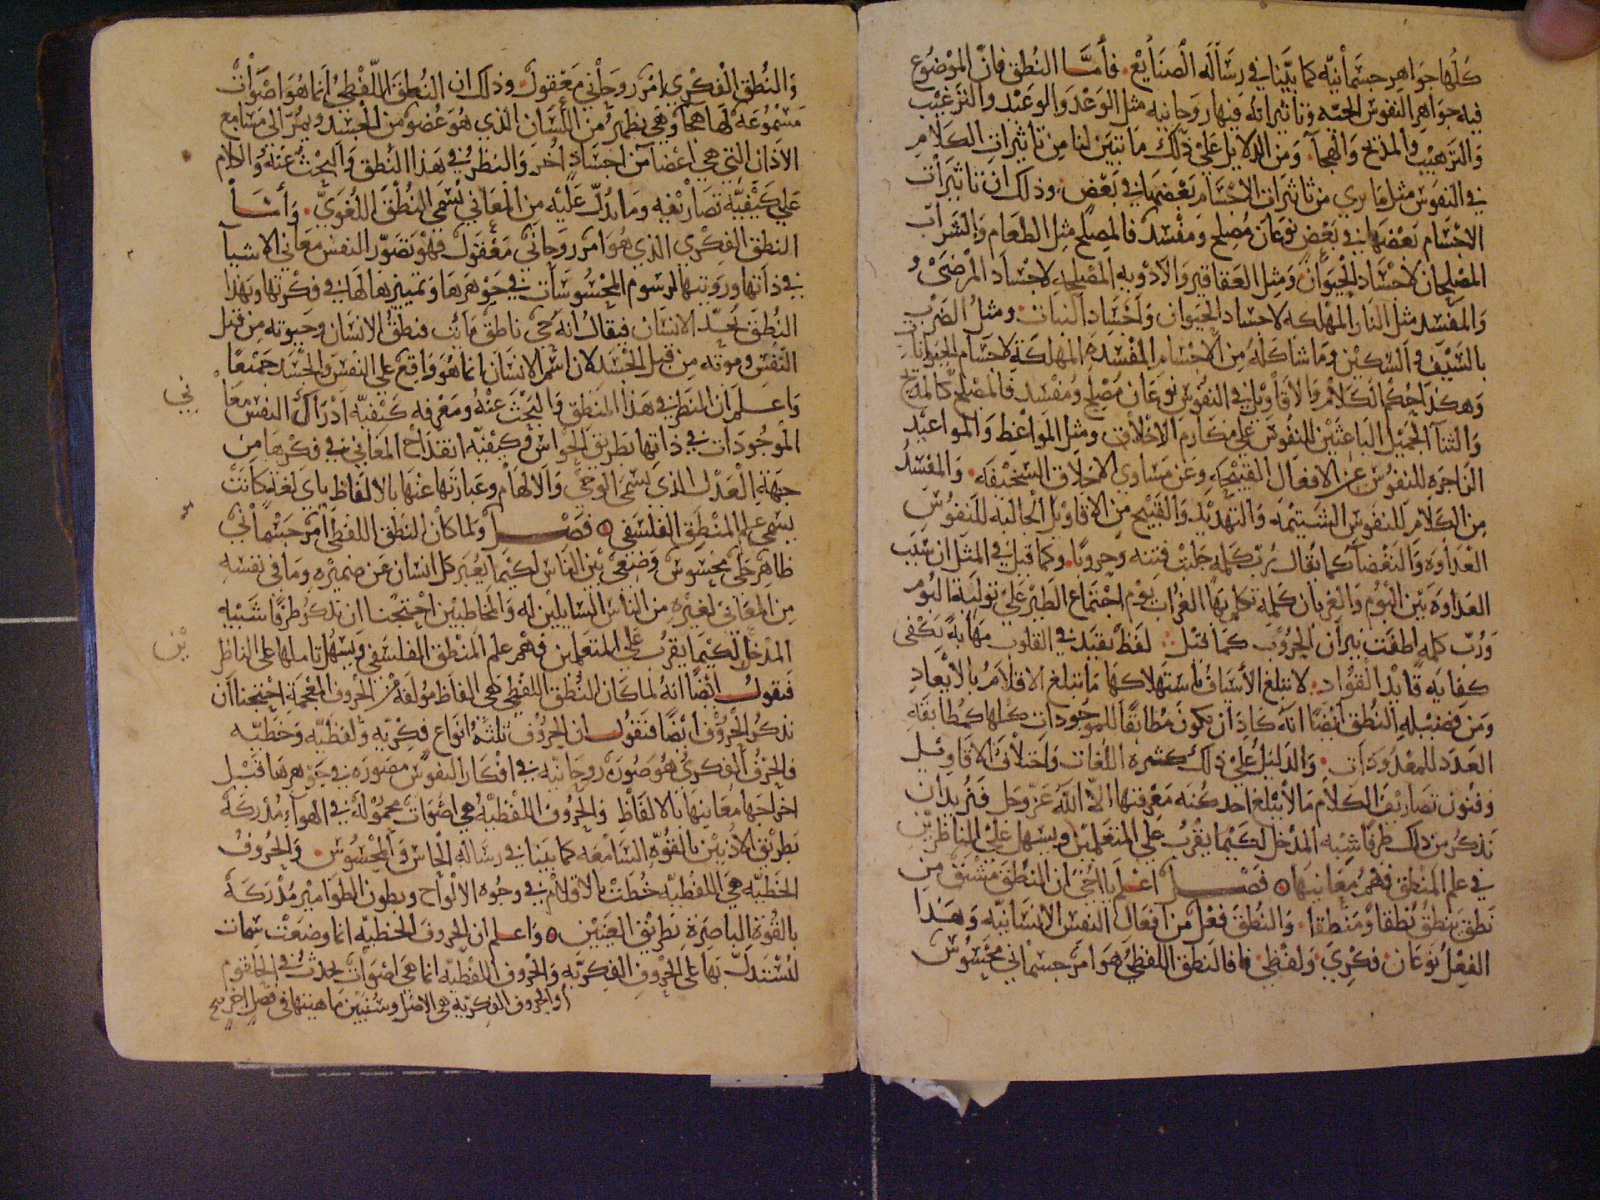 كلها جواهر جسمانيه كما بينا في رسالة الصنايع. فأما النطق فان الموضوع
فيه جواهر النفوس الحيه وتاثيراته فيها روحانيه مثل الوعد والوعيد والترغيب
والترهيب والمديح والهجا. ومن الدلايل على ذلك ما تبين لنا من تاثيرات الكلام
في النفوس مثل ما يرى من تاثيرات الاجسام بعضها في بعض. وذلك ان تاثيرات
الاجسام بعضها في بعض نوعان مصلح ومفسد فالمصلح مثل الطعام والشراب
المصلحان لاجساد الحيوان ومثل العقاقير والادويه المصلحه لاجساد المرضى و
والمفسد مثل النار المهلكه لاجساد الحيوان واجساد النبات. ومثل الضرب
بالسيف والسكين وما شاكله من الاجسام المفسده المهلكة لاجسام الحيوانات
وهكذا حكم الكلام والاقاويل في النفوس نوعان مصلح ومفسد فالمصلح كالمديح
والثنا الجميل الباعثين للنفوس على مكارم الاخلاق ومثل المواعظ والمواعيد
الزاجره للنفوس عن الافعال القبيحه وعن مساوى الاخلاق السخيفه. والمفسد
من الكلام للنفوس الشتيمه والتهديد والقبيح من الاقاويل الجالبه للنفوس
العداوة والبغضا كما يقال رب كلمه جلبت فتنه وحروبا. وكما قيل في المثل ان سبب
العداوة بين البوم والغربان كلمه تكلم بها الغراب يوم اجتماع الطير على تولية البوم
ورب كلمه اطفت نيران الحروب كما قيل: لفظ يفيد في القلوب مهابة يكفى
كفايه قايد القواد. لا تبلغ الأسياف باستهلاكها ما تبلغ الاقلام بالابعاد
ومن فضيله النطق ايضا انه كاد ان يكون مطابقا للموجودات كلها كمطابقة
العدد للمعدودات. والدليل على ذلك كثره اللغات واختلاف الاقاويل
وفنون تصاريف الكلام ما لا يبلغ احد كنه معرفتها الا الله عز وجل فنريد ان
نذكر من ذلك طرفا شبه المدخل لكيما يقرب على المتعلمين ويسهل على الناظرين
في علم المنطق فهم معانيها فصل اعلم يا اخي ان النطق مشتق من
نطق ينطق نطقا ومنطقا. والنطق فعل من افعال النفس الانسانيه وهذا
الفعل نوعان. فكري. ولفظي. فالنطق اللفظي هو امر جسماني محسوس
والنطق الفكري امر روحاني معقول. وذلك ان النطق اللفظي انما هو اصوات
مسموعه لها هجا وهي تظهر من اللسان الذي هو عضو من الجسد وتمر الى مسامع
الاذان التي هي اعضا من اجساد أخر والنظر في هذا النطق والبحث عنه والكلام
على كيفية تصاريفه وما يدل عليه من المعاني يسمى النطق اللغوي. وأما
النطق الفكري الذي هو امر روحاني معقول فهو تصور النفس معاني الاشيا
في ذاتها ورويتها لرسوم المحسوسات في جوهرها وتمييزها لها في فكرتها وبهذا
النطق يحد الانسان فيقال انه حي ناطق مايت فنطق الانسان وحيوته من قبل
النفس وموته من قبل الجسد لان اسم الانسان انما هو واقع على النفس والجسد جميعا
واعلم ان النظر في هذا المنطق والبحث عنه ومعرفه كيفيه ادراك النفس معا
ني
الموجودات في ذاتها بطريق الحواس وكيفيه انقداح المعاني في فكرها من
جهة العقل الذي يسمى الوحي والالهام وعبارتها عنها بالالفاظ باي لغه كانت
يسمى علم المنطق الفلسفي فصل ولما كان النطق اللفظي امر جسماني
ظاهر جلي محسوس وضع بين الناس لكيما يعبر كل انسان عن ضميره وما في نفسه
من المعاني لغيره من الناس السايلين له والمخاطبين احتجنا ان نذكر طرفا شبيه
المدخل لكيما يقرب على المتعلمين فهم علم المنطق الفلسفي ويسهل تاملها على الناظر
ين
فنقول ايضا انه لما كان النطق اللفظي هي الفاظ مولفه من الحروف المعجمة احتجنا ان
نذكر الحروف أيضا فنقول ان الحروف ثلثة انواع فكريه ولفظيه وخطيه
فالحرف الفكري هو صورة روحانيه في افكار النفوس مصوره في جوهرها قبل
اخراجها معانيها بالالفاظ والحروف اللفظيه هي اصوات محمولة في الهوآء مدركة
بطريق الاذنين بالقوه السامعه كما بينا في رساله الحاس والمحسوس. والحروف
الخطيه هي اللفظيه خطت بالاقلام في وجوه الالواح وبطون الطوامير مدركة
بالقوة الباصرة بطريق العينين واعلم ان الحروف الخطيه انما وضعت سمات
ليستدل بها على الحروف الفكريه والحروف اللفظيه انما هي اصوات تحدث في الحلقوم
والحروف الفكريه هي الاصل وسنبين ماهيتها في فصل اخر